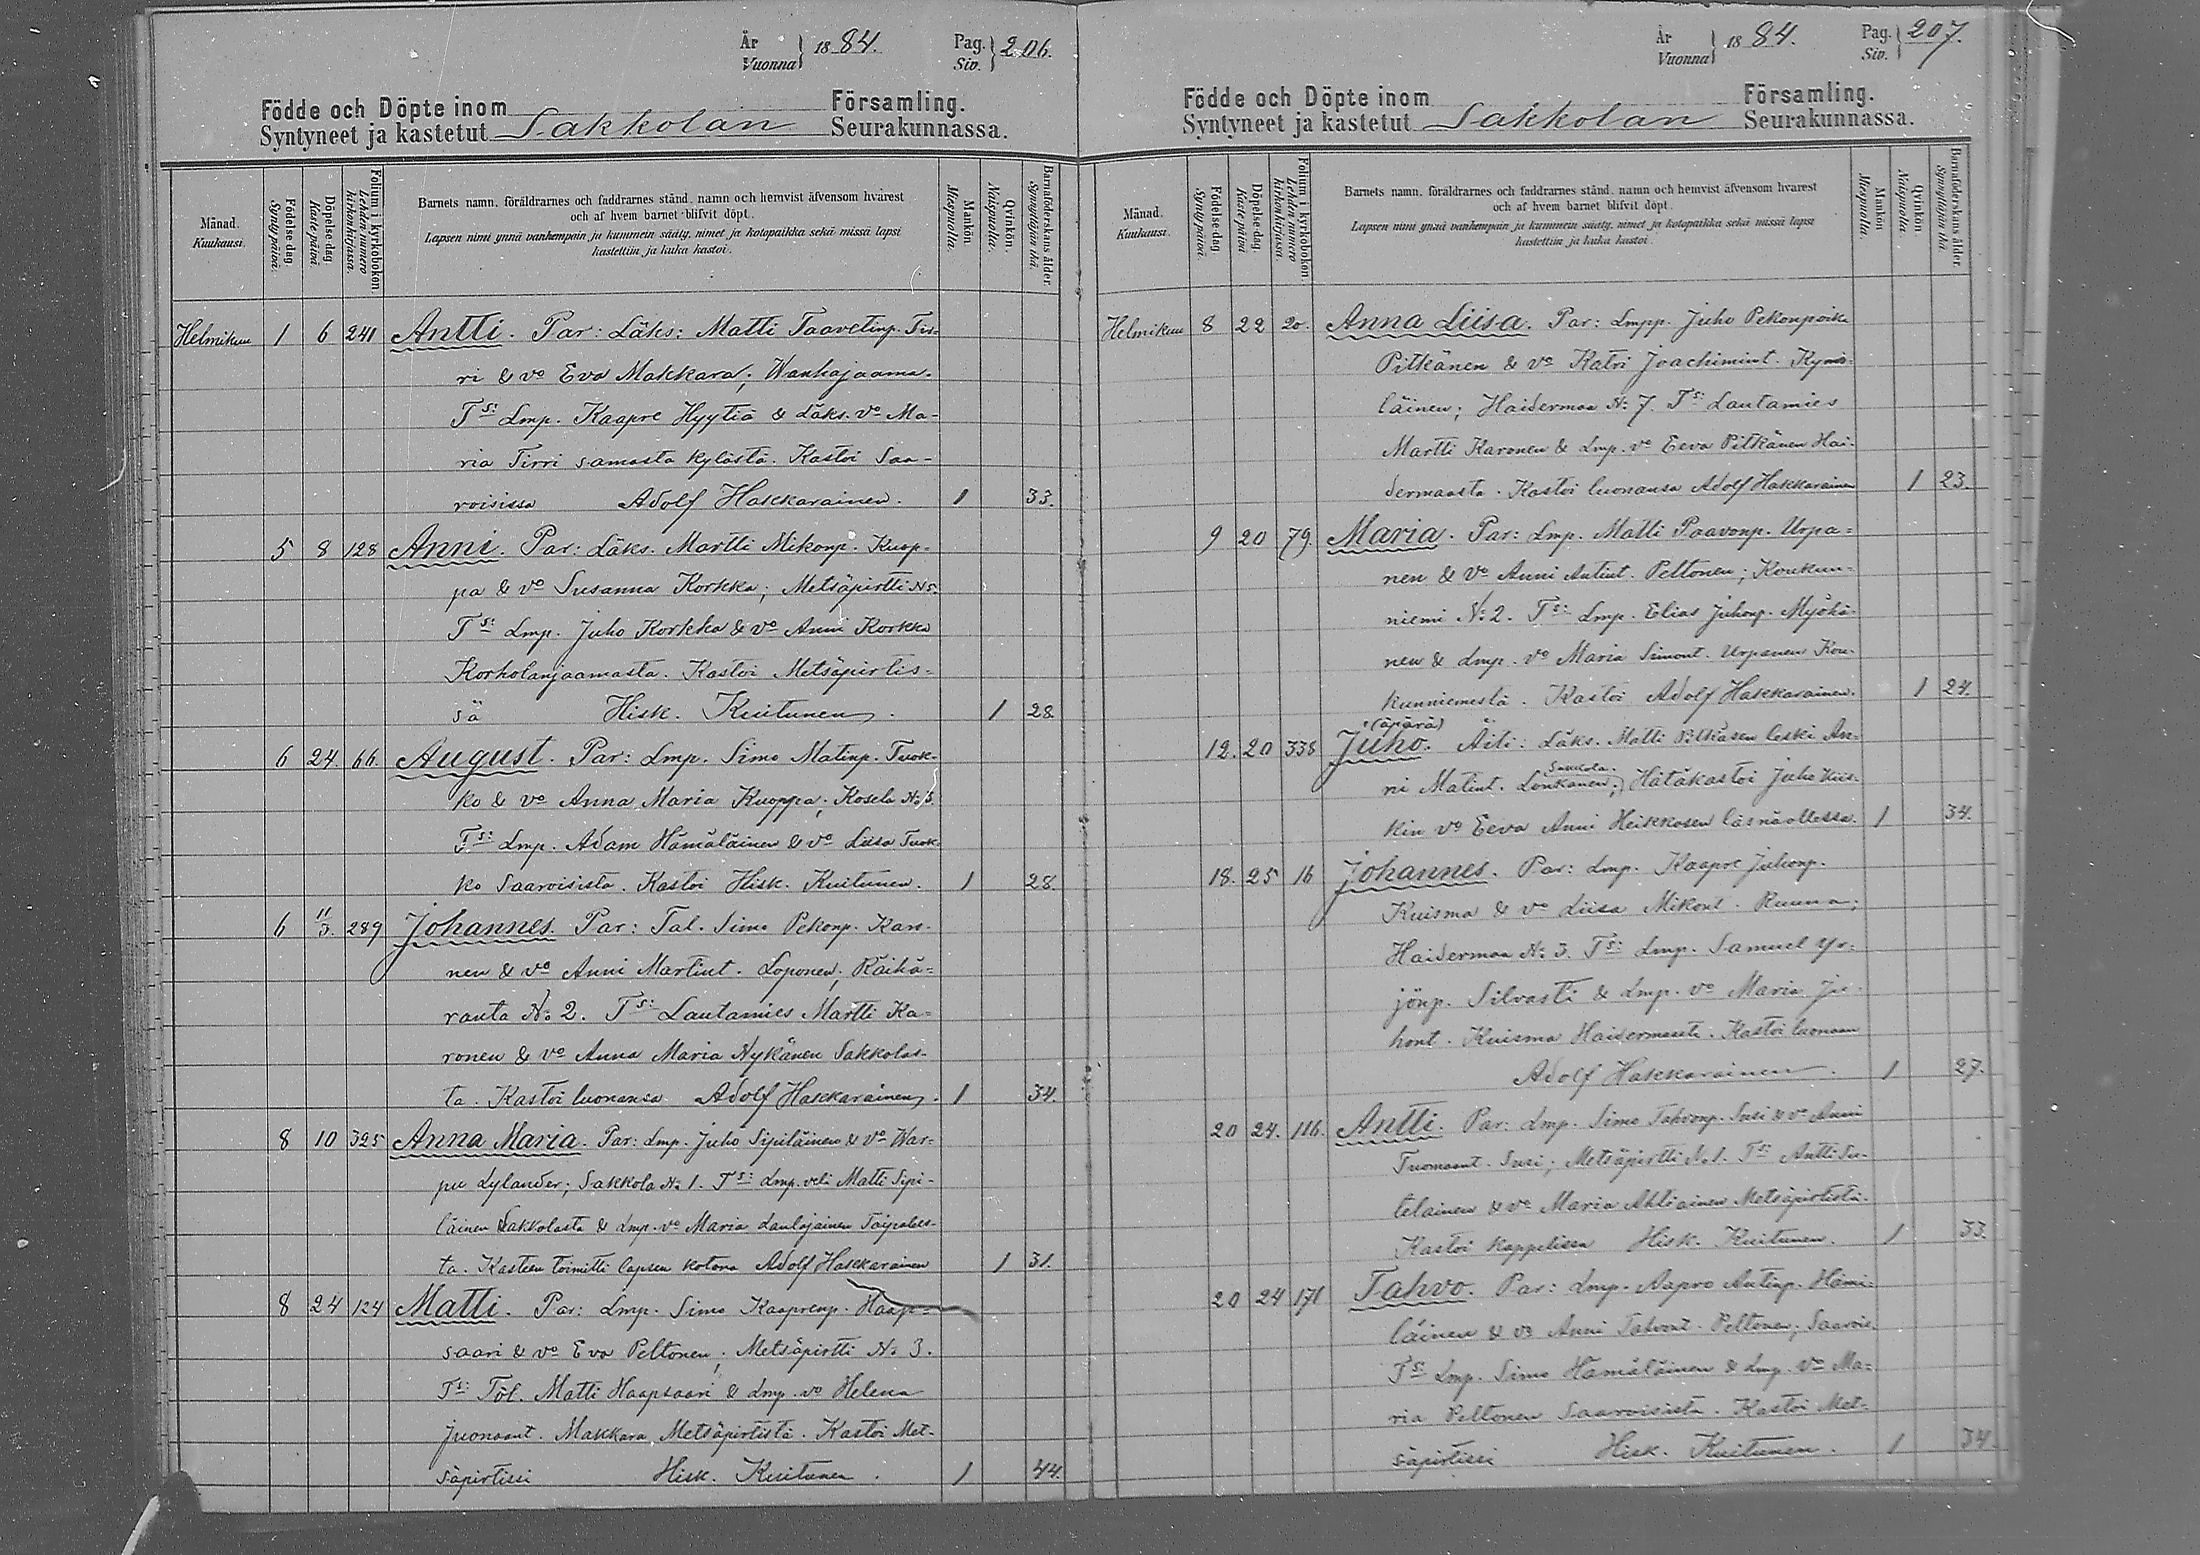 År
Vuonna } 1884. Pag.
Siv. } 206.
Födde och Döpte inom
Syntyneet ja kastetut Sakkolan Församling.
Seurakunnassa.
Månad.
Kuukausi.
Födelse-dag.
Syntypäivä.
Döpelse-dag.
Kastepäivä.
Folium i kyrkoboken.
Lehden numero kirkonkirjassa.
Barnets namn, föräldrarnes och faddrarnes stånd, namn och hemvist äfvensom hvarest
och af hvem barnet blifvit döpt.
Lapsen nimi ynnä vanhempain ja kummein sääty, nimet ja kotopaikka sekä missä lapsi
kastettiin ja kuka kastoi.
Mankön.
Miespuolia.
Qvinkön.
Naispuolia.
Barnaföderskans ålder.
Synnyttäjän ikä.
Helmikuu 1 6 241 Antti. Par: Läks: Matti Taavetinp. Tir-
ri & vo Eva Makkara; Wanhajaama.
Tsi: Lmp. Kaapre Hyytiä & Läks. vo Ma-
ria Tirri samasta kylästä. Kastoi Saa-
roisissa Adolf Hakkarainen. 1 33.
5 8 128 Anni. Par: Läks. Martti Mikonp. Kuop-
pa & vo Susanna Korkka; Metsäpirtti No 5.
Tsi: Lmp. Juho Korkka & vo Anni Korkka
Korholanjaamasta. Kastoi Metsäpirtis-
sä Hisk. Kuitunen. 1 28.
6 24. 66. August. Par: Lmp. Simo Matinp. Tuok-
ko & vo Anna Maria Kuoppa; Kosela No 3.
Tsi: Lmp. Adam Hämäläinen & vo Liisa Tuok-
ko Saaroisista. Kastoi Hisk. Kuitunen. 1 28.
6 11/3. 289 Johannes. Par: Tal. Simo Pekonp. Karo-
nen & vo Anni Martint. Loponen; Räihä-
ranta No 2. Tsi: Lautamies Martti Ka-
ronen & vo Anna Maria Nykänen Sakkolas-
ta. Kastoi luonansa Adolf Hakkarainen. 1 34.
8 10 325 Anna Maria. Par: Lmp. Juho Sipiläinen & vo War-
pu Lylander; Sakkola No 1. Tsi: Lmp. veli Matti Sipi-
läinen Sakkolasta & Lmp. vo Maria Laulajainen
ta. Kasteen toimitti lapsen kotona Adolf Hakkarainen 1 31.
8 24 124 Matti. Par: Lmp. Simo Kaaprenp. Haap-
saari & vo Eva Peltonen; Metsäpirtti No 3.
Tsi: Tal. Matti Haapsaari & Lmp. vo Helena
Juonaant. Makkara Metsäpirtistä. Kastoi Met-
säpirtissi Hisk. Kuitunen. 1 44.
År
Vuonna } 1884. Pag.
Siv. } 207.
Födde och Döpte inom
Syntyneet ja kastetut Sakkolan Församling.
Seurakunnassa.
Månad.
Kuukausi.
Födelse-dag.
Syntypäivä.
Döpelse-dag.
Kastepäivä.
Folium i kyrkoboken.
Lehden numero kirkonkirjassa.
Barnets namn, föräldrarnes och faddrarnes stånd, namn och hemvist äfvensom hvarest
och af hvem barnet blifvit döpt.
Lapsen nimi ynnä vanhempain ja kummein sääty, nimet ja kotopaikka sekä missä lapsi
kastettiin ja kuka kastoi.
Mankön.
Miespuolia.
Qvinkön.
Naispuolia.
Barnaföderskans ålder.
Synnyttäjän ikä.
Helmikuu 8 22 20. Anna Liisa. Par: Lmpp. Juho Pekonpoika
Pitkänen & vo Katri Joachimint. Kymä-
läinen; Haidermaa No 7. Tsi: Lautamies
Martti Karonen & Lmp. vo Eeva Pitkänen Hai-
dermaasta. Kastoi luonansa Adolf Hakkarainen 1 23.
9 20 79. Maria. Par: Lmp. Matti Paavonp. Urpa-
nen & vo Anni Antint. Peltonen; Koukun-
niemi No 2. Tsi: Lmp. Elias Juhonp. Myöhä-
nen & Lmp. vo Maria Simont. Urpanen Kou-
kunniemestä. Kastoi Adolf Hakkarainen. 1 24.
(äpärä)
12. 20 338 Juho. Äiti: Läks. Matti Pitkäsen leski An-
ni Matint. Lonkanen; Sakkola. Hätäkastoi Juho Kiis-
kin vo Eeva Anni Heikkosen läsnäollessa. 1 34.
18. 25 16 Johannes. Par: Lmp. Kaapre Juhonp.
Kuisma & vo Liisa Mikont. Ruuna;
Haidermaa No 3. Tsi: Lmp. Samuel Yr-
jönp. Silvasti & Lmp. vo Maria Ju-
hont. Kuisma Haidermaasta. Kastoi luonaan
Adolf Hakkarainen. 1 27.
20 24. 116. Antti. Par: Lmp. Simo Tahvonp. Susi & vo Anni
Tuomaant. Susi; Metsäpirtti No 1. Tsi: Antti Su-
telainen & vo Maria Ahtiainen Metsäpirtistä.
Kastoi kappelissa Hisk. Kuitunen. 1 33.
20 24 171 Tahvo. Par: Lmp. Aapro Antinp. Hämä-
läinen & vo Anni Tahvont. Peltonen; Saarois.
Tsi: Lmp. Simo Hämäläinen & Lmp. vo Ma-
ria Peltonen Saaroisista. Kastoi Met-
säpirtissi Hisk. Kuitunen. 1 34.